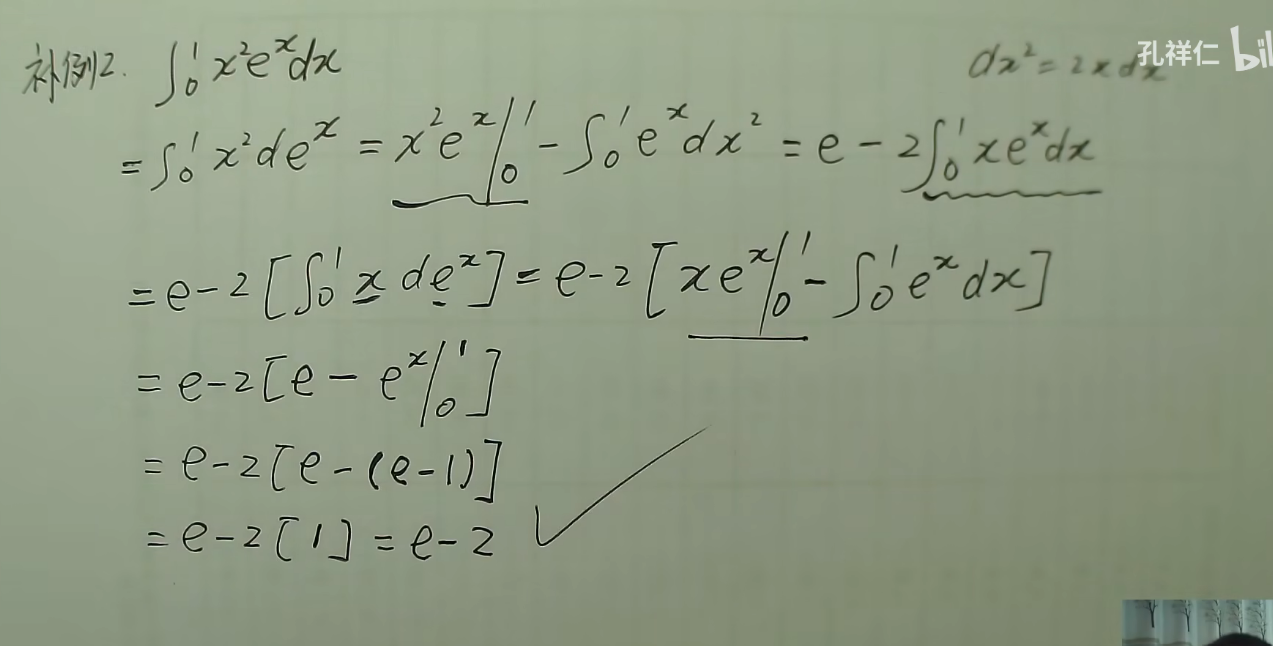 补例2. ∫₀¹ x²eˣdx
dx² = 2xdx
孔祥仁 bil
= ∫₀¹ x²deˣ = x²eˣ|₀¹ - ∫₀¹ eˣdx² = e - 2∫₀¹ xeˣdx
= e-2[∫₀¹ x deˣ] = e-2[xeˣ|₀¹ - ∫₀¹ eˣdx]
= e-2[e - eˣ|₀¹]
= e-2[e-(e-1)]
= e-2[1] = e-2